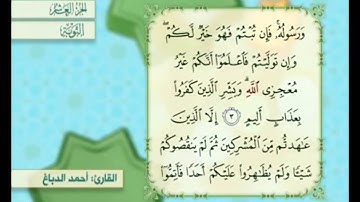 الجزء العاشر
التوبة
وَرَسُولُهُۥ ۚ فَإِن تُبْتُمْ فَهُوَ خَيْرٌ لَّكُمْ ۖ
وَإِن تَوَلَّيْتُمْ فَٱعْلَمُوٓا۟ أَنَّكُمْ غَيْرُ
مُعْجِزِى ٱللَّهِ ۗ وَبَشِّرِ ٱلَّذِينَ كَفَرُوا۟
بِعَذَابٍ أَلِيمٍ ٣ إِلَّا ٱلَّذِينَ
عَـٰهَدتُّم مِّنَ ٱلْمُشْرِكِينَ ثُمَّ لَمْ يَنقُصُوكُمْ
شَيْـًٔا وَلَمْ يُظَـٰهِرُوا۟ عَلَيْكُمْ أَحَدًا فَأَتِمُّوٓا۟
القارئ: أحمد الدباغ